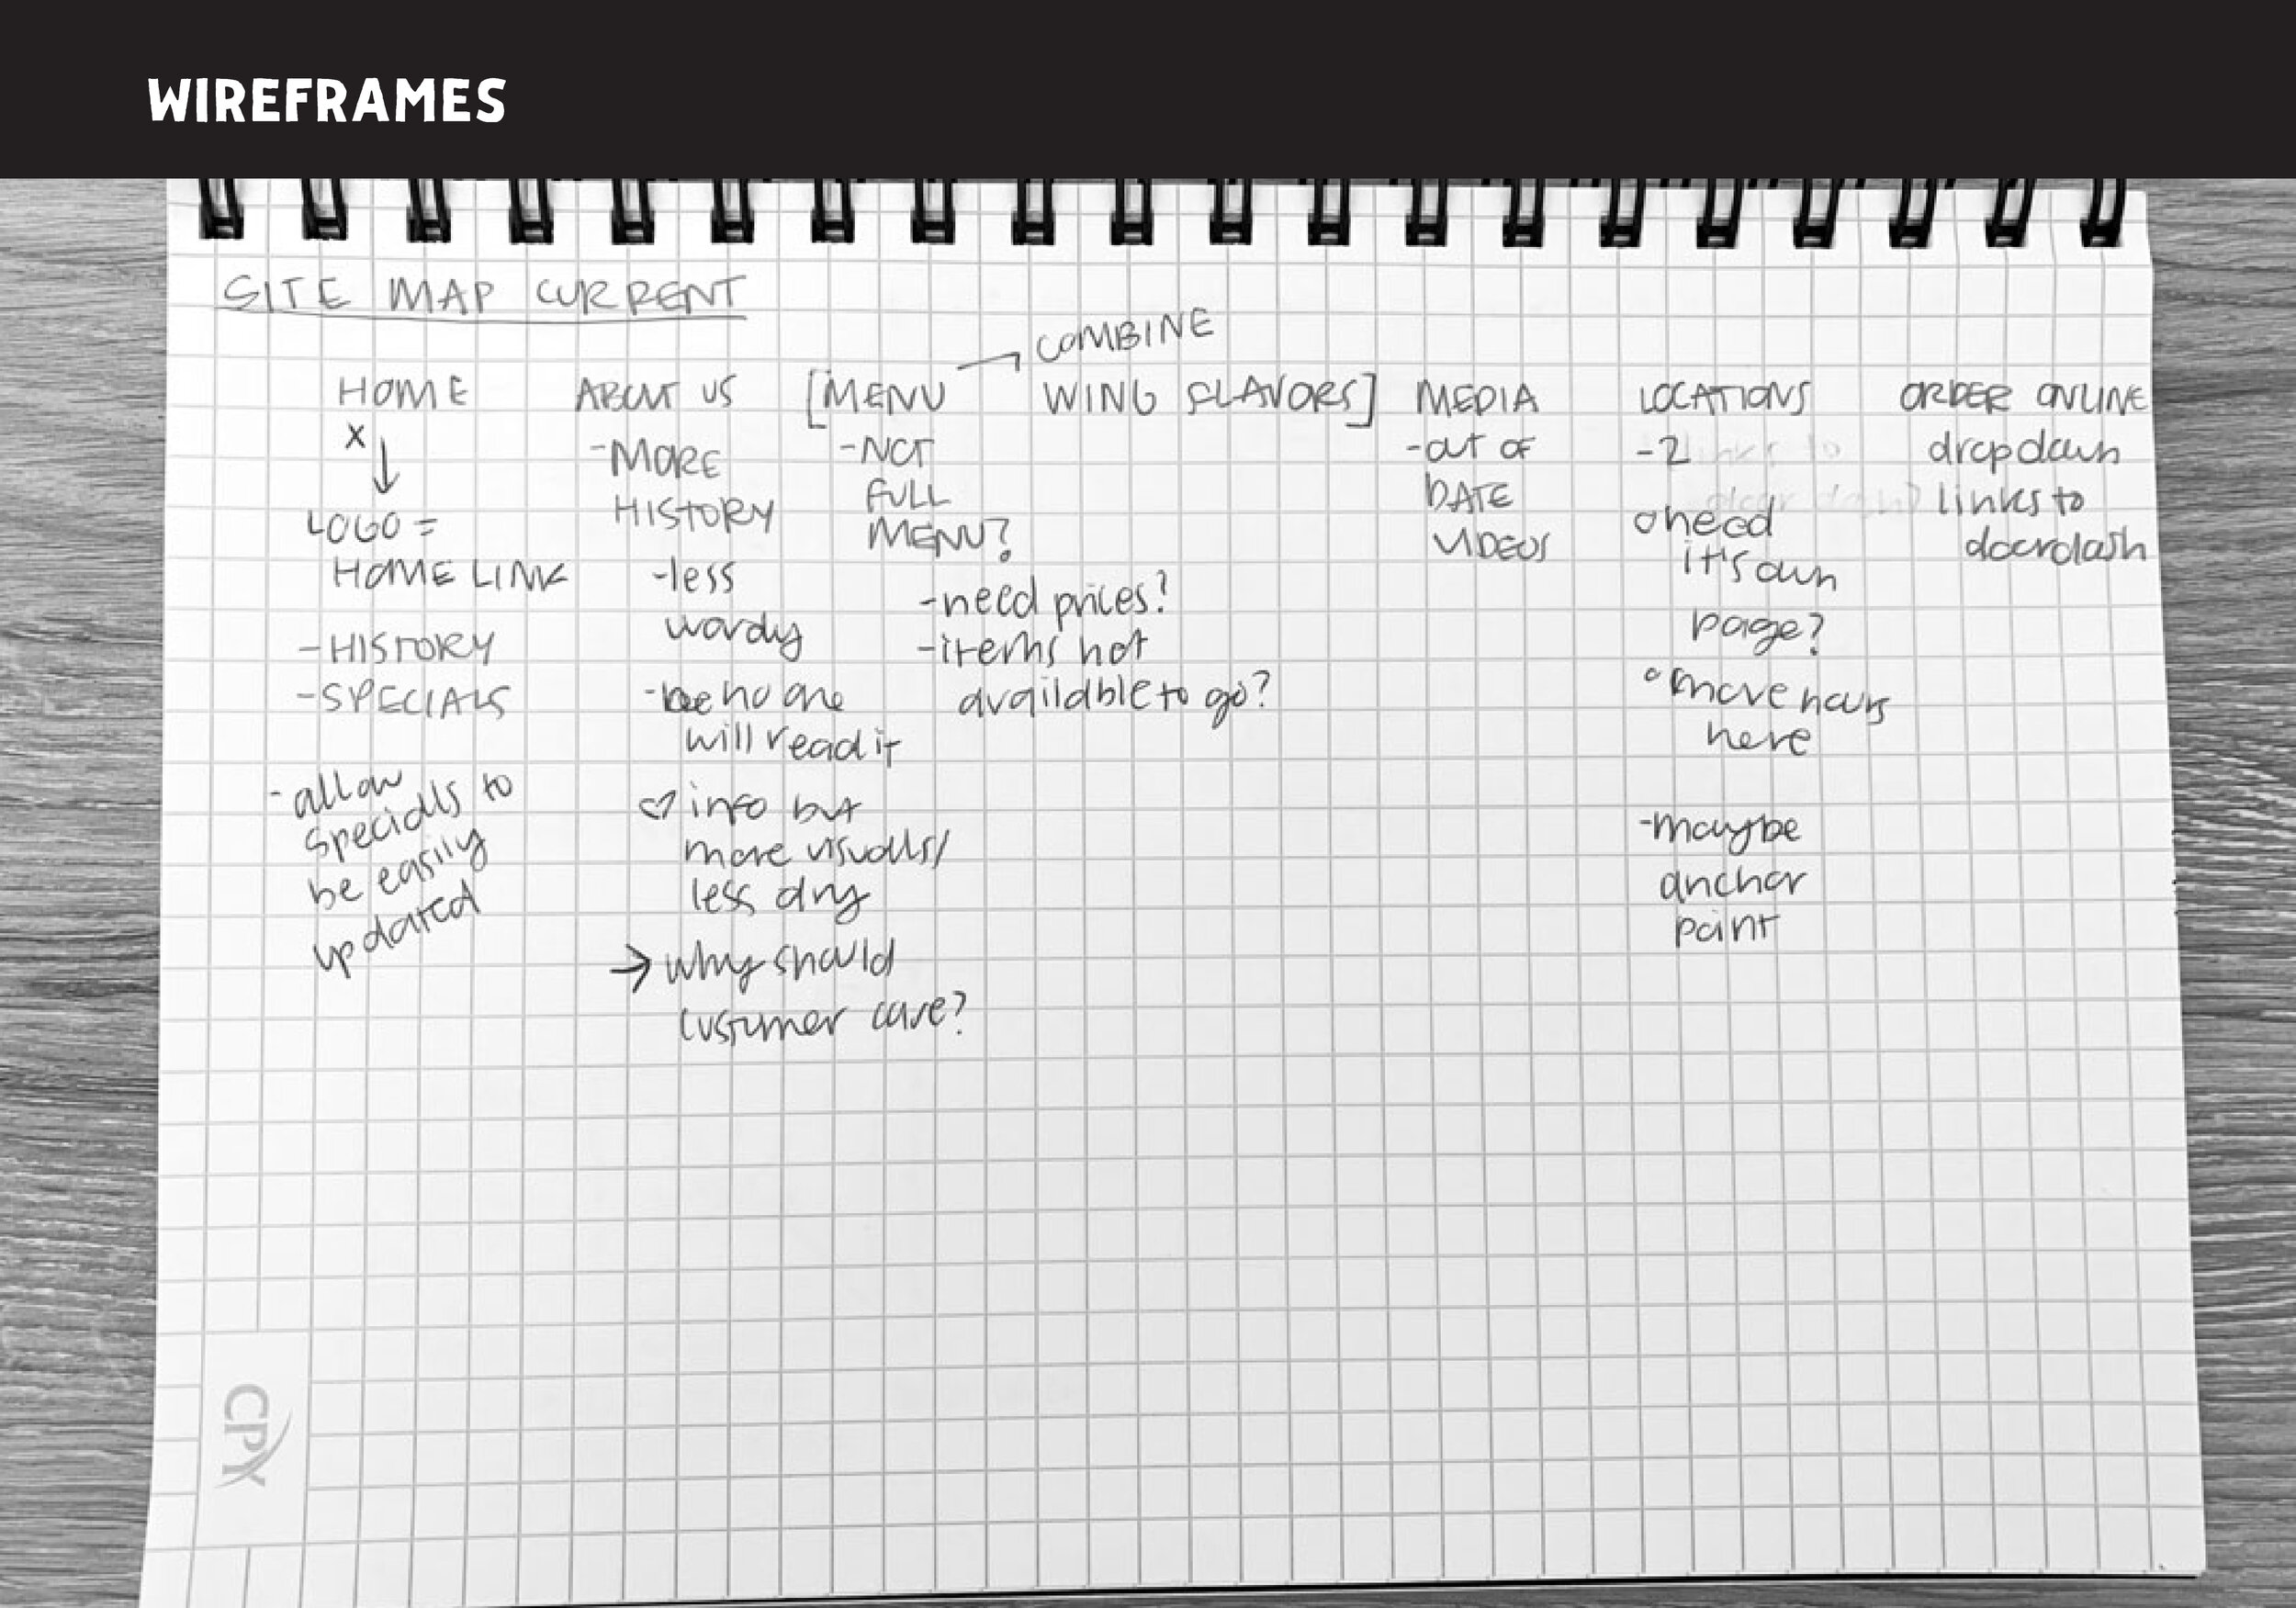 WIREFRAMES
SITE MAP CURRENT
COMBINE
HOME
X
LOGO =
HOME LINK
-HISTORY
-SPECIALS
-allow
specials to
be easily
updated
ABOUT US
-MORE
HISTORY
-less
wordy
-bc no one
will read it
♡ info but
more visuals/
less dry
→ why should
customer care?
[MENU
-NOT
FULL
MENU?
-need prices?
-items not
available to go?
WING FLAVORS]
MEDIA
-OUT OF
DATE
VIDEOS
LOCATIONS
-2
○ need
it's own
page?
○ move hours
here
-maybe
anchor
point
ORDER ONLINE
dropdown
links to
doordash
CPX